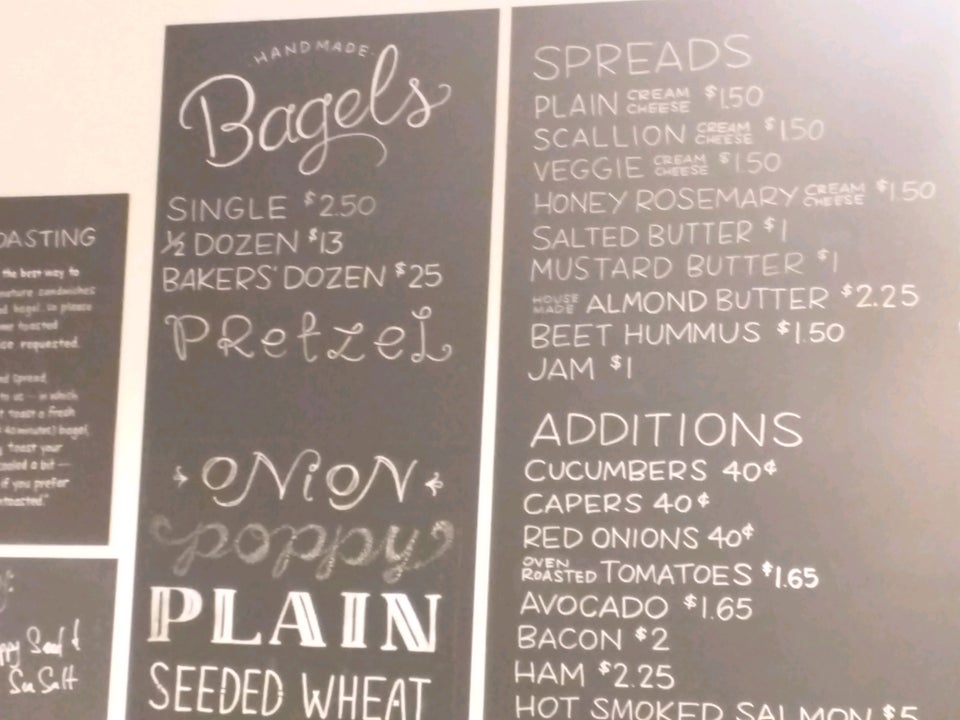 OASTING
the best way to
nature sandwiches
d bagel. so please
me toasted
ce requested.
nd spread,
to us - in which
t toast a fresh
40 minutes) bagel,
toast your
cooled a bit —
if you prefer
ntoasted."
ppy Seed &
Sea Salt
HANDMADE
Bagels
SINGLE $2.50
½ DOZEN $13
BAKERS' DOZEN $25
PRetzeL
ONiON
poppy
PLAIN
SEEDED WHEAT
SPREADS
PLAIN CREAM CHEESE $1.50
SCALLION CREAM CHEESE $1.50
VEGGIE CREAM CHEESE $1.50
HONEY ROSEMARY CREAM CHEESE $1.50
SALTED BUTTER $1
MUSTARD BUTTER $1
HOUSE MADE ALMOND BUTTER $2.25
BEET HUMMUS $1.50
JAM $1
ADDITIONS
CUCUMBERS 40¢
CAPERS 40¢
RED ONIONS 40¢
OVEN ROASTED TOMATOES $1.65
AVOCADO $1.65
BACON $2
HAM $2.25
HOT SMOKED SALMON $5